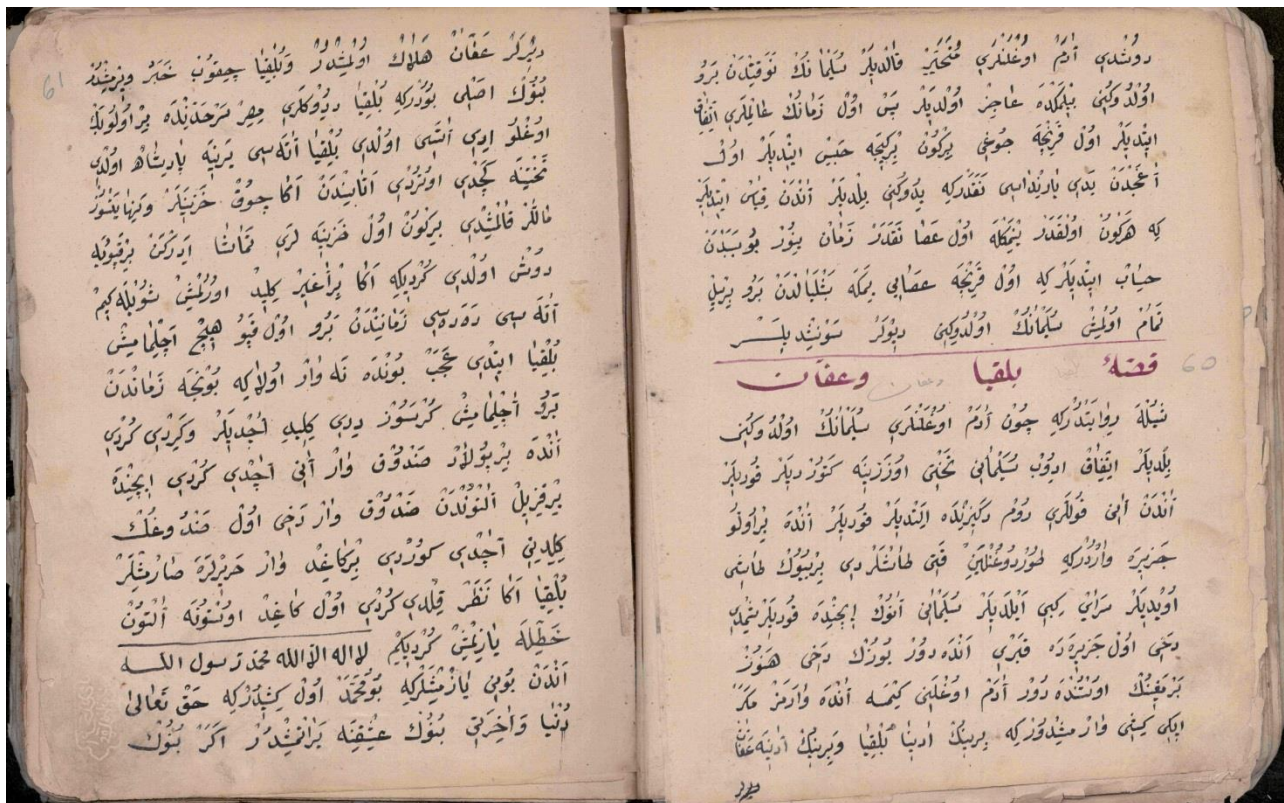 دوشدي آدم اوغلنلري متحير قالديلر سليمانك نه وقتدن برو
اولدوكني بيلمكده عاجز اولديلر پس اول زمانك عالملري اتفاق
ايتديلر اول قرنجه جوغي بركون بركيجه حبس ايتديلر اول
آغجدن يدي ياريداسي نقدركه يدوكني بيلديلر آندن قياس ايتديلر
كه هركون اولقدر ييمكله اول عصا نقدر زمان يبنور بو سببدن
حساب ايتديلر كه اول قرنجه عصايي يمكه بشليالدن برو بريل
تمام اولمش سليمانك اولدوكني ديولر سونشديلر
قصهٔ بلقيا وعفان
60
شيله روايتدركه چون آدم اوغلنلري سليمانك اولدوكني
بيلديلر اتفاق ادوب سليماني تختي اوزرينه كوترديلر قوديلر
آندن آني قوللري روم دكيزنده ايلتديلر قوديلر آنده براولو
جزيره واردركه طوردوغنلين قتي طاشلردي بربيوك طاشي
اويديلر سراي كبي ايلديلر سليماني آنوك ايچنده قوديلر شمدي
دخي اول جزيره ده قبري آنده دور بوزك دخي هنوز
برمغنك اوستنده دور آدم اوغلني كيمه آنده وارمز مكر
ايكي كيشي وارمشدوركه برينك آدينا بلقيا وبرينك آدينه عفان
ديرلر
61
ديرلر عفان هلاك اولمشدر وبلقيا چيقوب خبر ويرمشدر
بونوك اصلي بودركه بلقيا ديدوكلري مصر سرحدنده بر اولو بك
اوغلو ايدي آتسي اولدي بلقيا آتاسي يرينه پاديشاه اولدي
تختينه كچدي اوتردي آتاسيندن آكا چوق خزينلر وبنهايتسوز
ماللر قالمشدي بركون اول خزينه لري تماشا ايدركن برقپويه
دوش اولدي كرديكه آكا بر آغير كليد اورلمش شويله كيم
آته سي دده سي زمانيندن برو اول قپو هيچ آچلمامش
بلقيا ايتدي عجب بونده نه وار اولاكه بونجه زماندن
برو آچلمامش كرسوز ديدي كليدي آچديلر وكردي كردي
آنده بر بولاد صندوق وار آني آچدي كردي ايچنده
بر قزيل آلتوندن صندوق وار دخي اول صندوغك
كليديني آچدي كوردي بر كاغد وار حريرلره صارمشلر
بلقيا آكا نظر قلدي كردي اول كاغد اوستونه آلتون
خطيله يازلمش كرديكم لا اله الا الله محمد رسول الله
آندن بوني يازمشلركه بو محمد اول كيشدركه حق تعالى
دنيا وآخرتي بونوك عشقنه يراتمشدر اكر بونوك